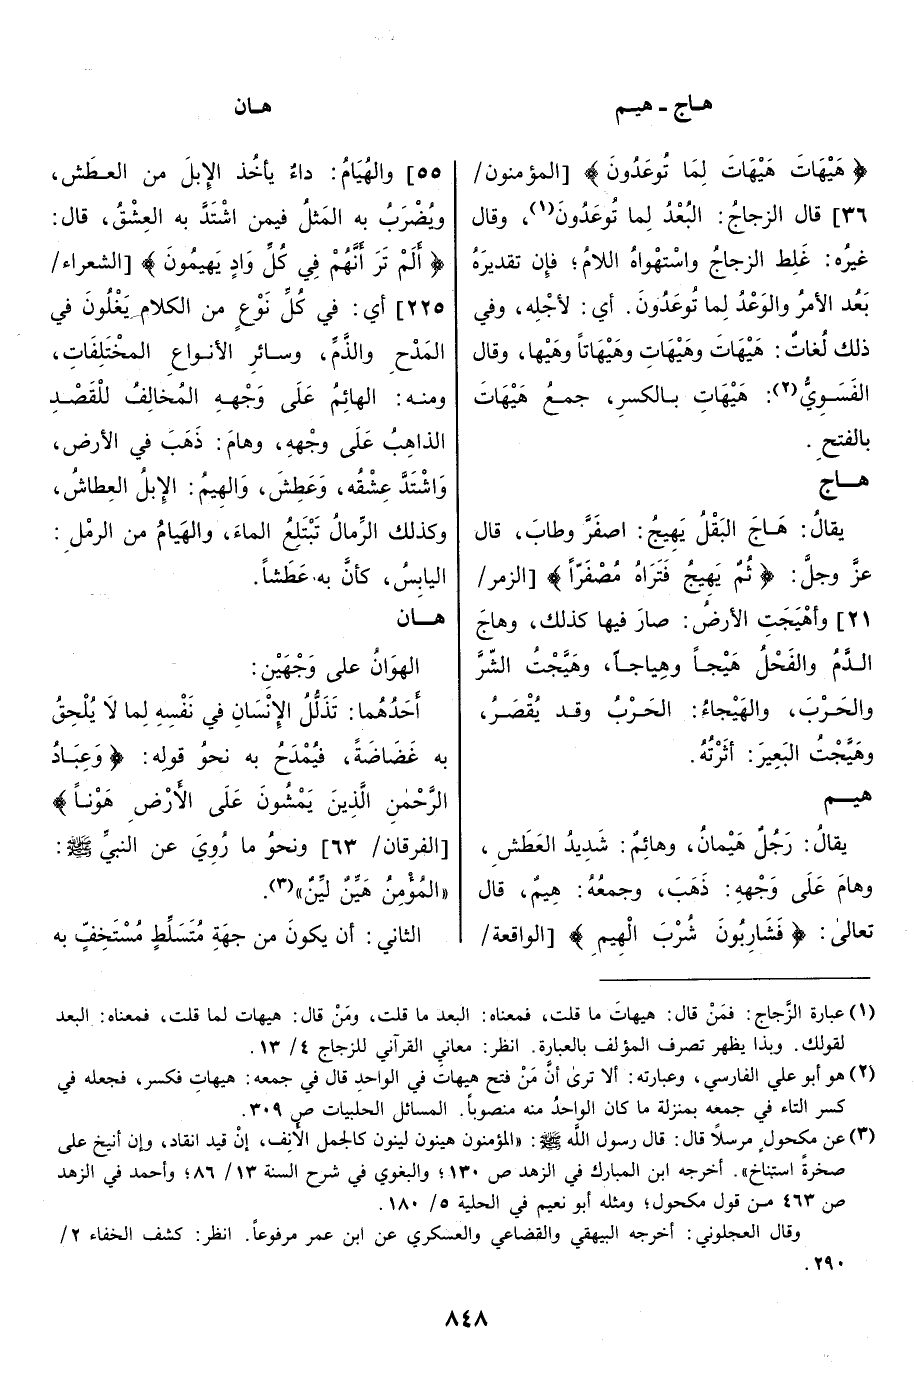 هـاج - هيـم
هـان
﴿ هَيْهَاتَ هَيْهَاتَ لِمَا تُوعَدُونَ ﴾ [المؤمنون/
٣٦] قال الزجاجُ: البُعْدُ لِما تُوعَدُونَ(١)، وقال
غيرُه: غَلِط الزجاجُ واستْهواهُ اللامُ؛ فإن تقديرَهُ
بَعُد الأمرُ والوَعْدُ لِما تُوعَدُونَ. أي: لأجْلِه، وفي
ذلك لُغاتٌ: هَيْهَاتَ وهَيْهَاتِ وهَيْهَاتاً وهَيْها، وقال
الفَسَوِيُّ(٢): هَيْهَاتِ بـالكسرِ، جمـعُ هَيْهَاتَ
بالفتحِ.
هـاج
يقالُ: هَـاجَ البَقْلُ يَهيجُ: اصفَرَّ وطابَ، قال
عزَّ وجلَّ: ﴿ ثُمَّ يَهِيجُ فَتَرَاهُ مُصْفَرّاً ﴾ [الزمر/
٢١] وأهْيَجَتِ الأرضُ: صارَ فيها كذلك، وهاجَ
الـدَّمُ والفَحْلُ هَيْجـاً وهِياجـاً، وهَيَّجْتُ الشّرَّ
والحَـرْبَ، والهَيْجاءُ: الحَـرْبُ وقـد يُقْصَـرُ،
وهَيَّجْتُ البَعِيرَ: أثَرْتُهُ.
هيـم
يقالُ: رَجُلٌ هَيْمانُ، وهائِمٌ: شَدِيدُ العَطَشِ،
وهامَ عَلَى وَجْهِهِ: ذَهَبَ، وجمعُهُ: هِيمٌ، قال
تعالىٰ: ﴿ فَشَارِبُونَ شُرْبَ الْهِيمِ ﴾ [الواقعة/
٥٥] والهُيَامُ: داءٌ يأخُذ الإبلَ من العـطَش،
ويُضْرَبُ به المَثلُ فيمن اشْتَدَّ به العِشْقُ، قال:
﴿ أَلَمْ تَرَ أَنَّهُمْ فِي كُلِّ وَادٍ يَهِيمُونَ ﴾ [الشعراء/
٢٢٥] أي: في كُلِّ نَوْعٍ من الكلامِ يَغْلُونَ في
المَدْحِ والذَّمِّ، وسـائـرِ الأنـواعِ المخْتَلِفَاتِ،
ومنـه: الهائِمُ عَلَى وَجْهِـهِ المُخالِفُ للْقَصْـدِ
الذاهِبُ عَلَى وجْهِهِ، وهامَ: ذَهَبَ في الأرضِ،
وَاشْتَدَّ عِشْقُه، وَعَطِشَ، وَالهِيمُ: الإبلُ العِطاشُ،
وكذلك الرِّمالُ تَبْتَلِعُ الماءَ، والهَيامُ من الرملِ:
اليابِسُ، كأنَّ به عَطَشاً.
هـان
الهوَانُ على وَجْهَيْنِ:
أَحَدُهُما: تَذَلُّلُ الإنْسَانِ في نَفْسِهِ لِما لَا يُلْحِقُ
به غَضَاضَةً، فيُمْدَحُ به نحوُ قوله: ﴿ وَعِبَادُ
الرَّحْمٰنِ الَّذِينَ يَمْشُونَ عَلَى الْأَرْضِ هَوْنـاً ﴾
[الفرقان/ ٦٣] ونحوُ ما رُوِيَ عن النبيِّ ﷺ:
«المُؤْمِنُ هَيِّنٌ لَيِّنٌ»(٣).
الثاني: أن يكونَ من جهَةِ مُتَسَلِّطٍ مُسْتَخِفٍّ به
(١) عبارة الزَّجاج: فمَنْ قال: هيهاتَ ما قلت، فمعناه: البعد ما قلت، ومَنْ قال: هيهات لما قلت، فمعناه: البعد
لقولك. وبذا يظهر تصرف المؤلف بالعبارة. انظر: معاني القرآني للزجاج ٤/ ١٣.
(٢) هو أبو علي الفارسي، وعبارته: ألا ترىٰ أنَّ مَنْ فتح هيهاتَ في الواحدِ قال في جمعه: هيهاتِ فكسر، فجعله في
كسر التاء في جمعه بمنزلة ما كان الواحدُ منه منصوباً. المسائل الحلبيات ص ٣٠٩.
(٣) عن مكحولٍ مرسلًا قال: قال رسول اللَّه ﷺ: «المؤمنون هينون لينون كالجمل الأَنِف، إنْ قيد انقاد، وإن أنيخ على
صخرةً استناخ». أخرجه ابن المبارك في الزهد ص ١٣٠؛ والبغوي في شرح السنة ١٣/ ٨٦؛ وأحمد في الزهد
ص ٤٦٣ مـن قول مكحول؛ ومثله أبو نعيم في الحلية ٥/ ١٨٠.
وقال العجلوني: أخرجه البيهقي والقضاعي والعسكري عن ابن عمر مرفوعاً. انظر: كشف الخفاء ٢/
٢٩٠.
٨٤٨